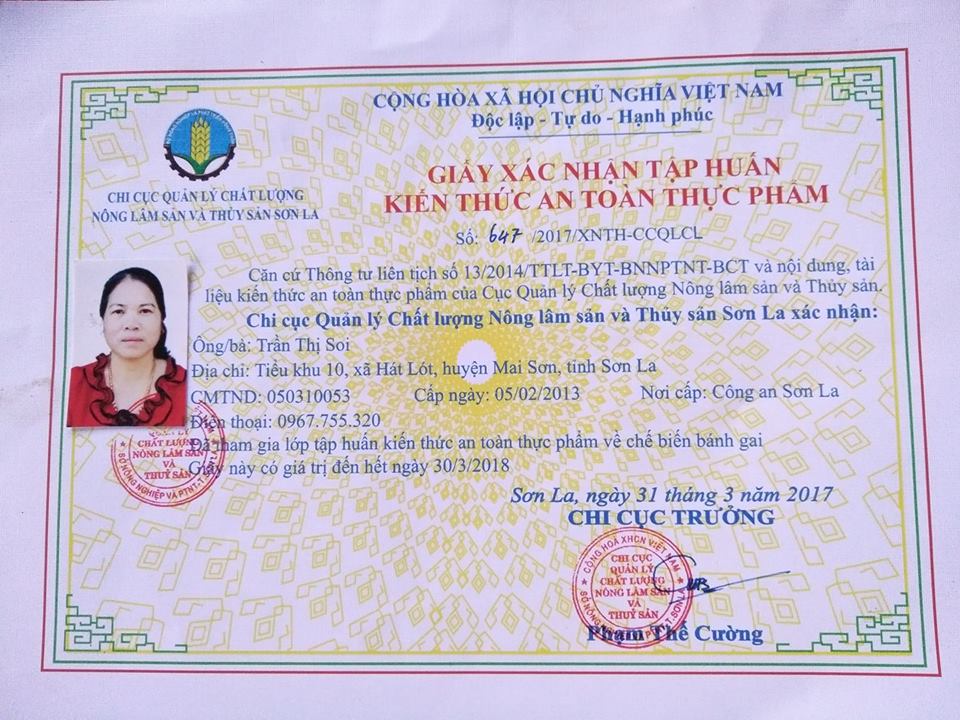 CỘNG HÒA XÃ HỘI CHỦ NGHĨA VIỆT NAM
Độc lập - Tự do - Hạnh phúc
CHI CỤC QUẢN LÝ CHẤT LƯỢNG
NÔNG LÂM SẢN VÀ THỦY SẢN SƠN LA
GIẤY XÁC NHẬN TẬP HUẤN
KIẾN THỨC AN TOÀN THỰC PHẨM
Số: 647 /2017/XNTH-CCQLCL
Căn cứ Thông tư liên tịch số 13/2014/TTLT-BYT-BNNPTNT-BCT và nội dung, tài
liệu kiến thức an toàn thực phẩm của Cục Quản lý Chất lượng Nông lâm sản và Thủy sản.
Chi cục Quản lý Chất lượng Nông lâm sản và Thủy sản Sơn La xác nhận:
Ông/bà: Trần Thị Soi
Địa chỉ: Tiểu khu 10, xã Hát Lót, huyện Mai Sơn, tỉnh Sơn La
CMTND: 050310053 Cấp ngày: 05/02/2013 Nơi cấp: Công an Sơn La
Điện thoại: 0967.755.320
Đã tham gia lớp tập huấn kiến thức an toàn thực phẩm về chế biến bánh gai
Giấy này có giá trị đến hết ngày 30/3/2018
CHẤT LƯỢNG
NÔNG LÂM SẢN
VÀ
THUỶ SẢN
SỞ NÔNG NGHIỆP VÀ PTNT-T.SƠN LA
Sơn La, ngày 31 tháng 3 năm 2017
CHI CỤC TRƯỞNG
CỘNG HOÀ XHCN VIỆT NAM
CHI CỤC
QUẢN LÝ
CHẤT LƯỢNG
NÔNG LÂM SẢN
VÀ
THUỶ SẢN
SỞ NÔNG NGHIỆP VÀ PTNT-T.SƠN LA
Phạm Thế Cường